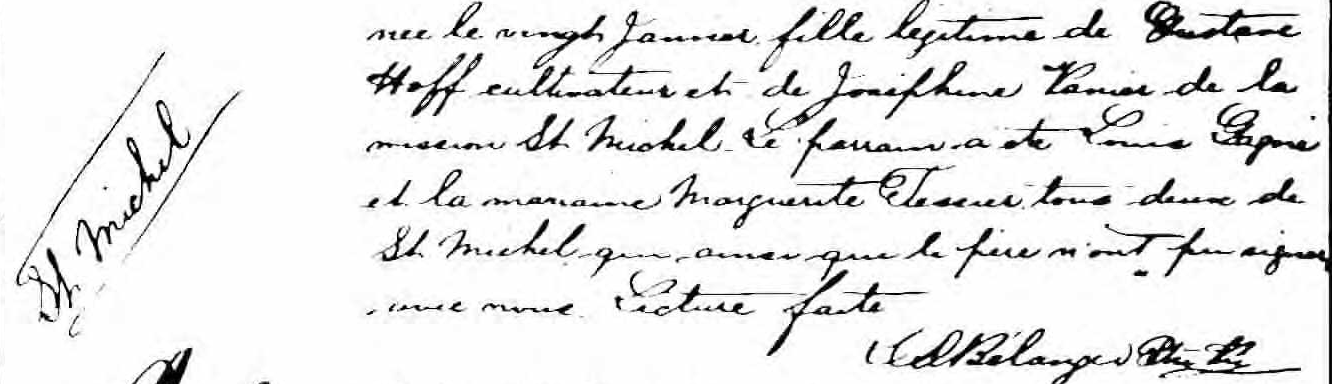 nee le vingt Janvier fille legitime de Gustave
Hoff cultivateur et de Josephine Vanier de la
mission St Michel Le parrain a ete Louis Gagné
et la marraine Marguerite Tessier tous deux de
St Michel qui ainsi que le père n'ont pu signer
avec nous. Lecture faite
St. Michel
Bélanger Ptre